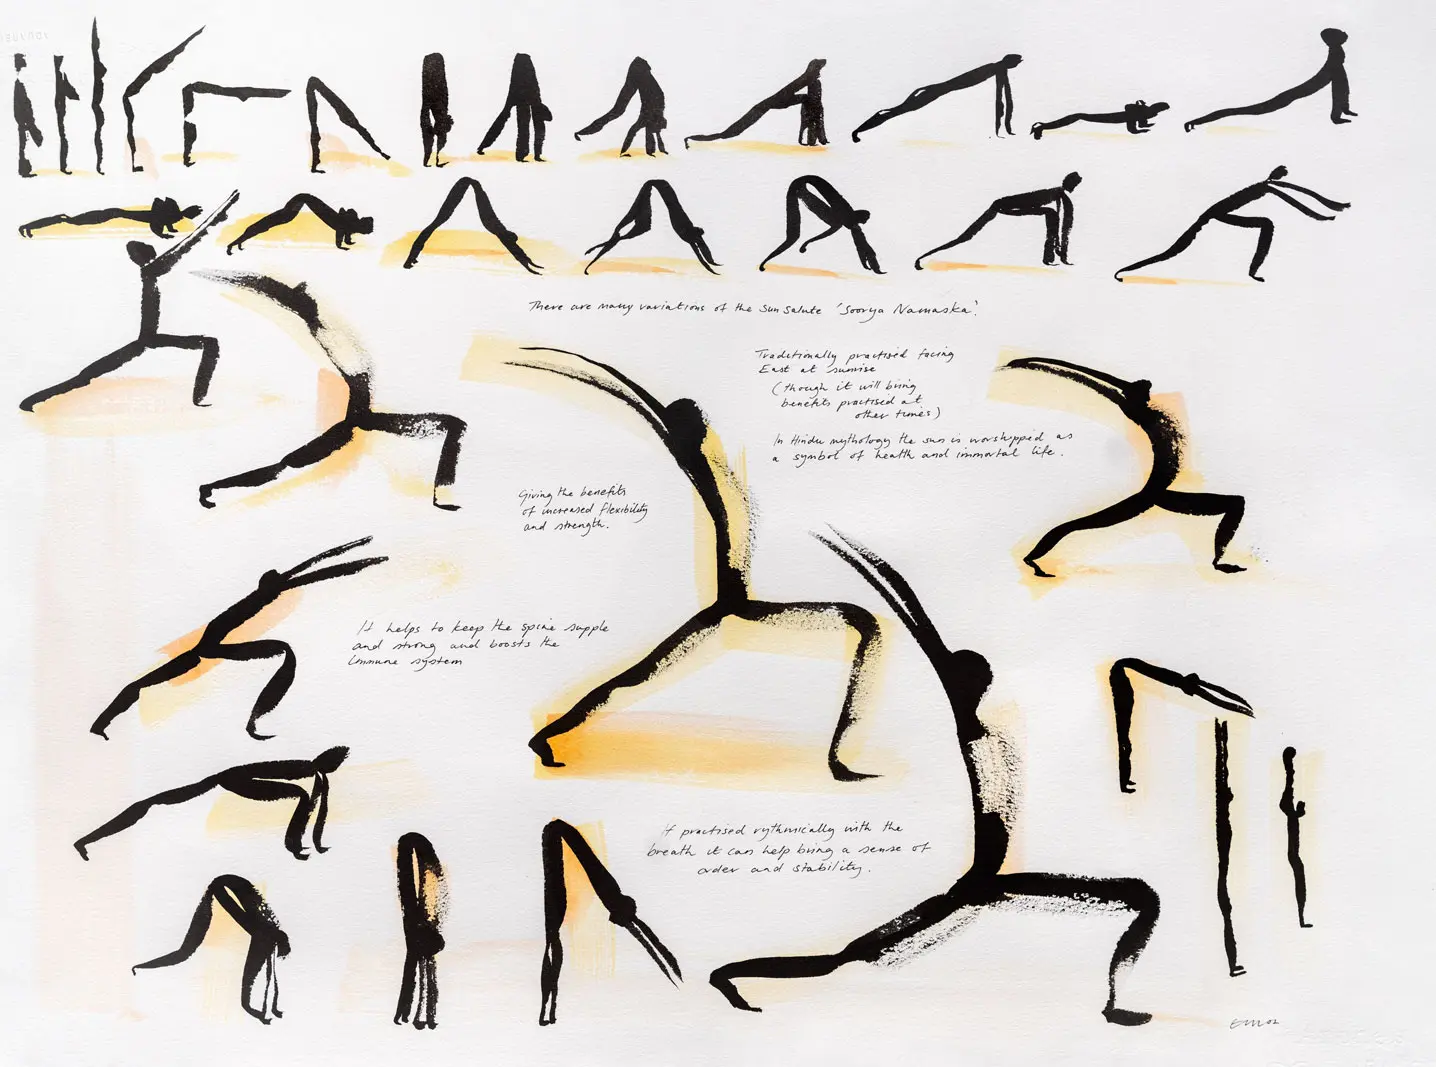 There are many variations of the Sun Salute 'Soorya Namaska'.
Traditionally practised facing
East at sunrise
(though it will bring
benefits practised at
other times)
In Hindu mythology the sun is worshipped as
a symbol of health and immortal life.
Giving the benefits
of increased flexibility
and strength.
It helps to keep the spine supple
and strong and boosts the
immune system
If practised rythmically with the
breath it can help bring a sense of
order and stability.